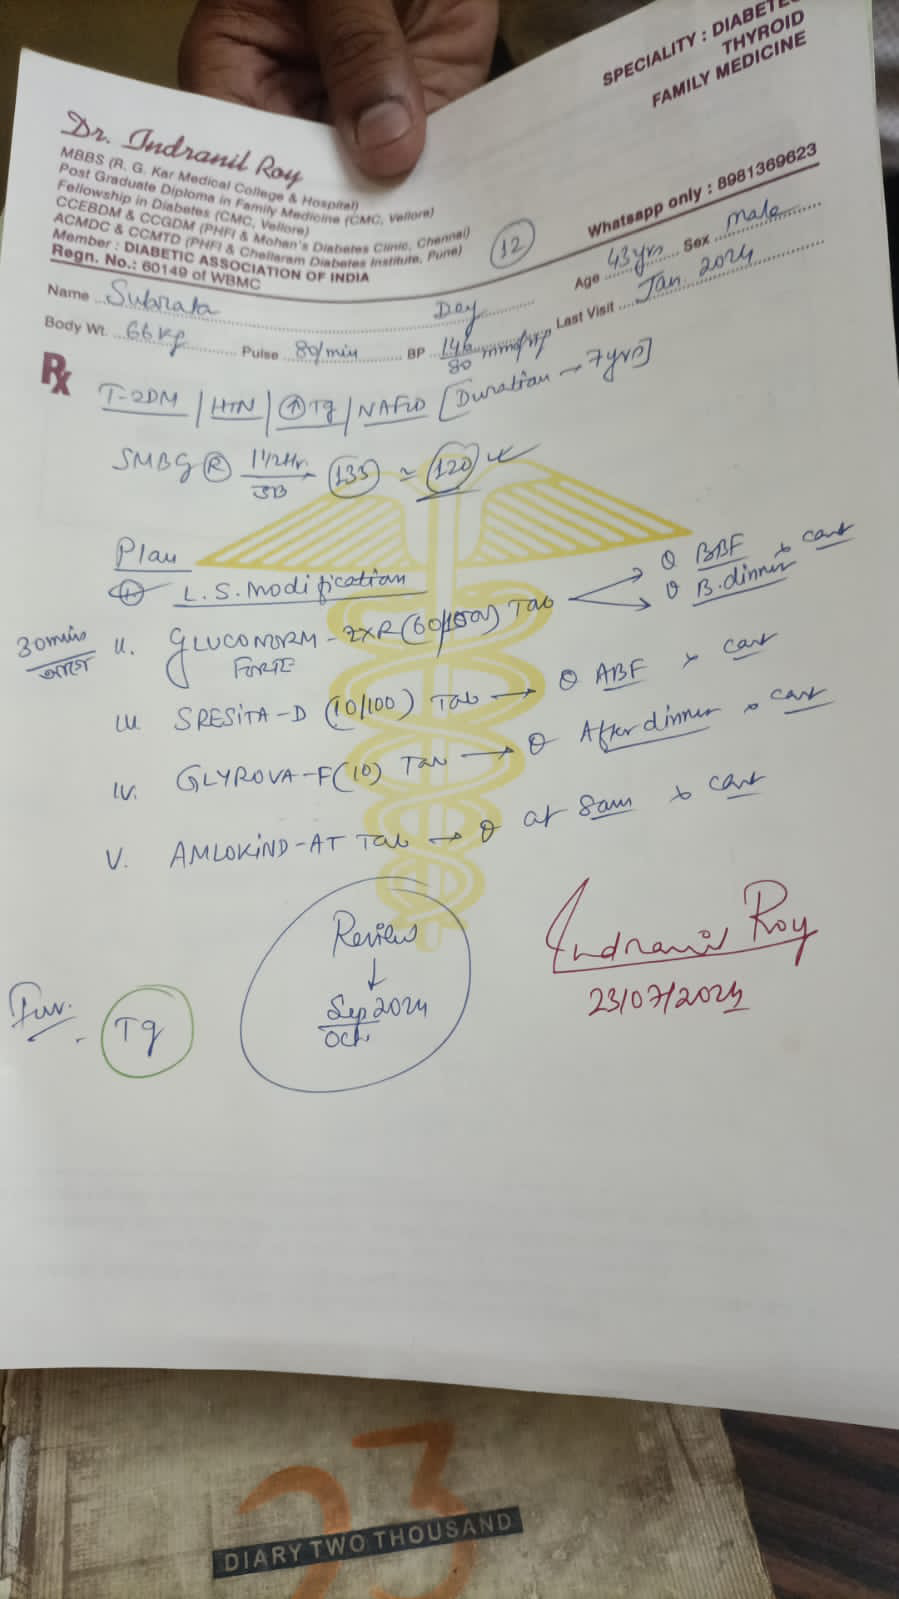 SPECIALITY : DIABETES
THYROID
FAMILY MEDICINE
Dr. Indranil Roy
MBBS (R. G. Kar Medical College & Hospital)
Post Graduate Diploma in Family Medicine (CMC, Vellore)
Fellowship in Diabetes (CMC, Vellore)
CCEBDM & CCGDM (PHFI & Mohan's Diabetes Clinic, Chennai)
ACMDC & CCMTD (PHFI & Chellaram Diabetes Institute, Pune)
Member : DIABETIC ASSOCIATION OF INDIA
Regn. No.: 60149 of WBMC
12
Whatsapp only : 8981369623
Age 43 yrs Sex male
Name Subrata Dey Last Visit Jan. 2024
Body Wt. 66 kg Pulse 80/min BP 146/80 mmHg
Rx
T-2DM / HTN / ↑Tg / NAFLD [Duration → 7yrs]
SMBG R 1½Hr. 135 ≃ 120
Plan
L.S. modification
30 mins আগে
II. GLUCONORM - (60/ Tab BBF x cont
FORTE B. dinner
III SRESITA-D (10/100) Tab → ABF x cont
IV. GLYROVA-F (10) Tab → After dinner x cont
V. AMLOKIND-AT Tab → at 8am x cont
Review
↓
Sep 2024
Oct.
Indranil Roy
23/07/2024
Inv.
Tg
23
DIARY TWO THOUSAND